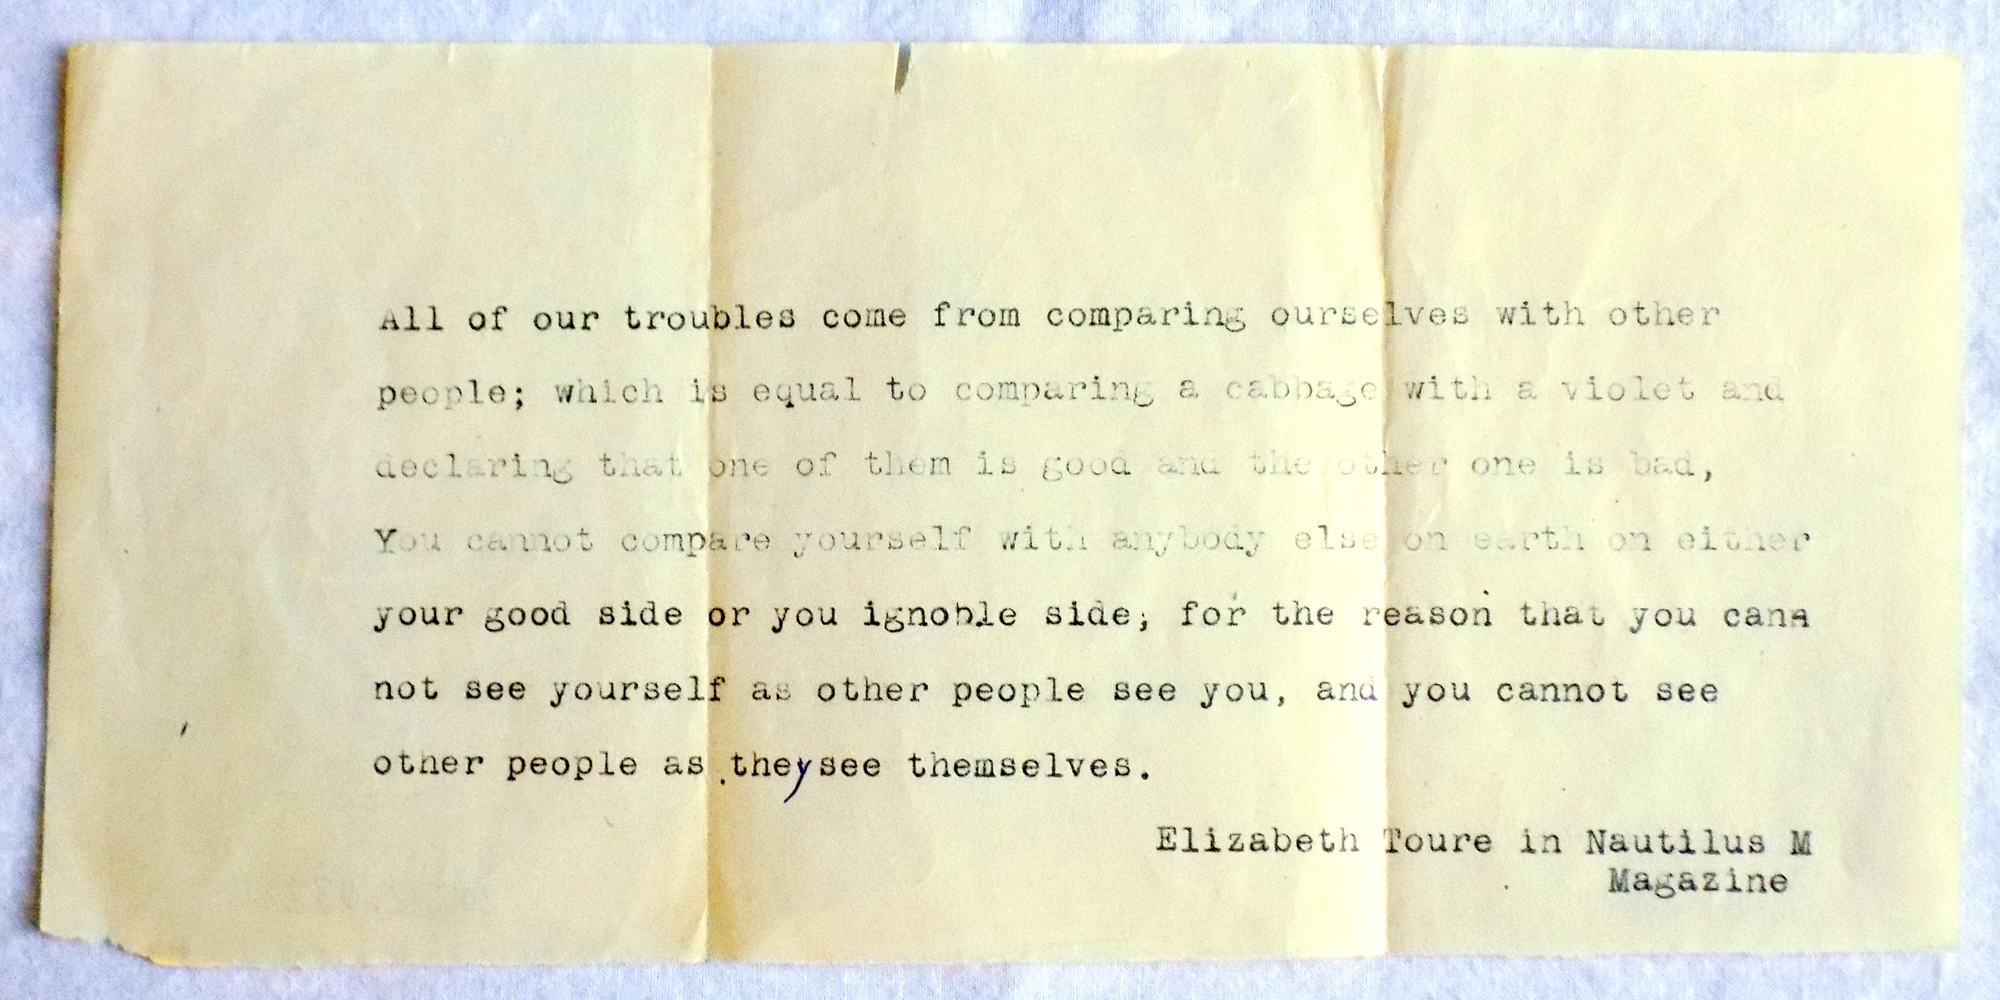 All of our troubles come from comparing ourselves with other
people; which is equal to comparing a cabbage with a violet and
declaring that one of them is good and the other one is bad,
You cannot compare yourself with anybody else on earth on either
your good side or you ignoble side; for the reason that you can
not see yourself as other people see you, and you cannot see
other people as they see themselves.
Elizabeth Toure in Nautilus M
Magazine